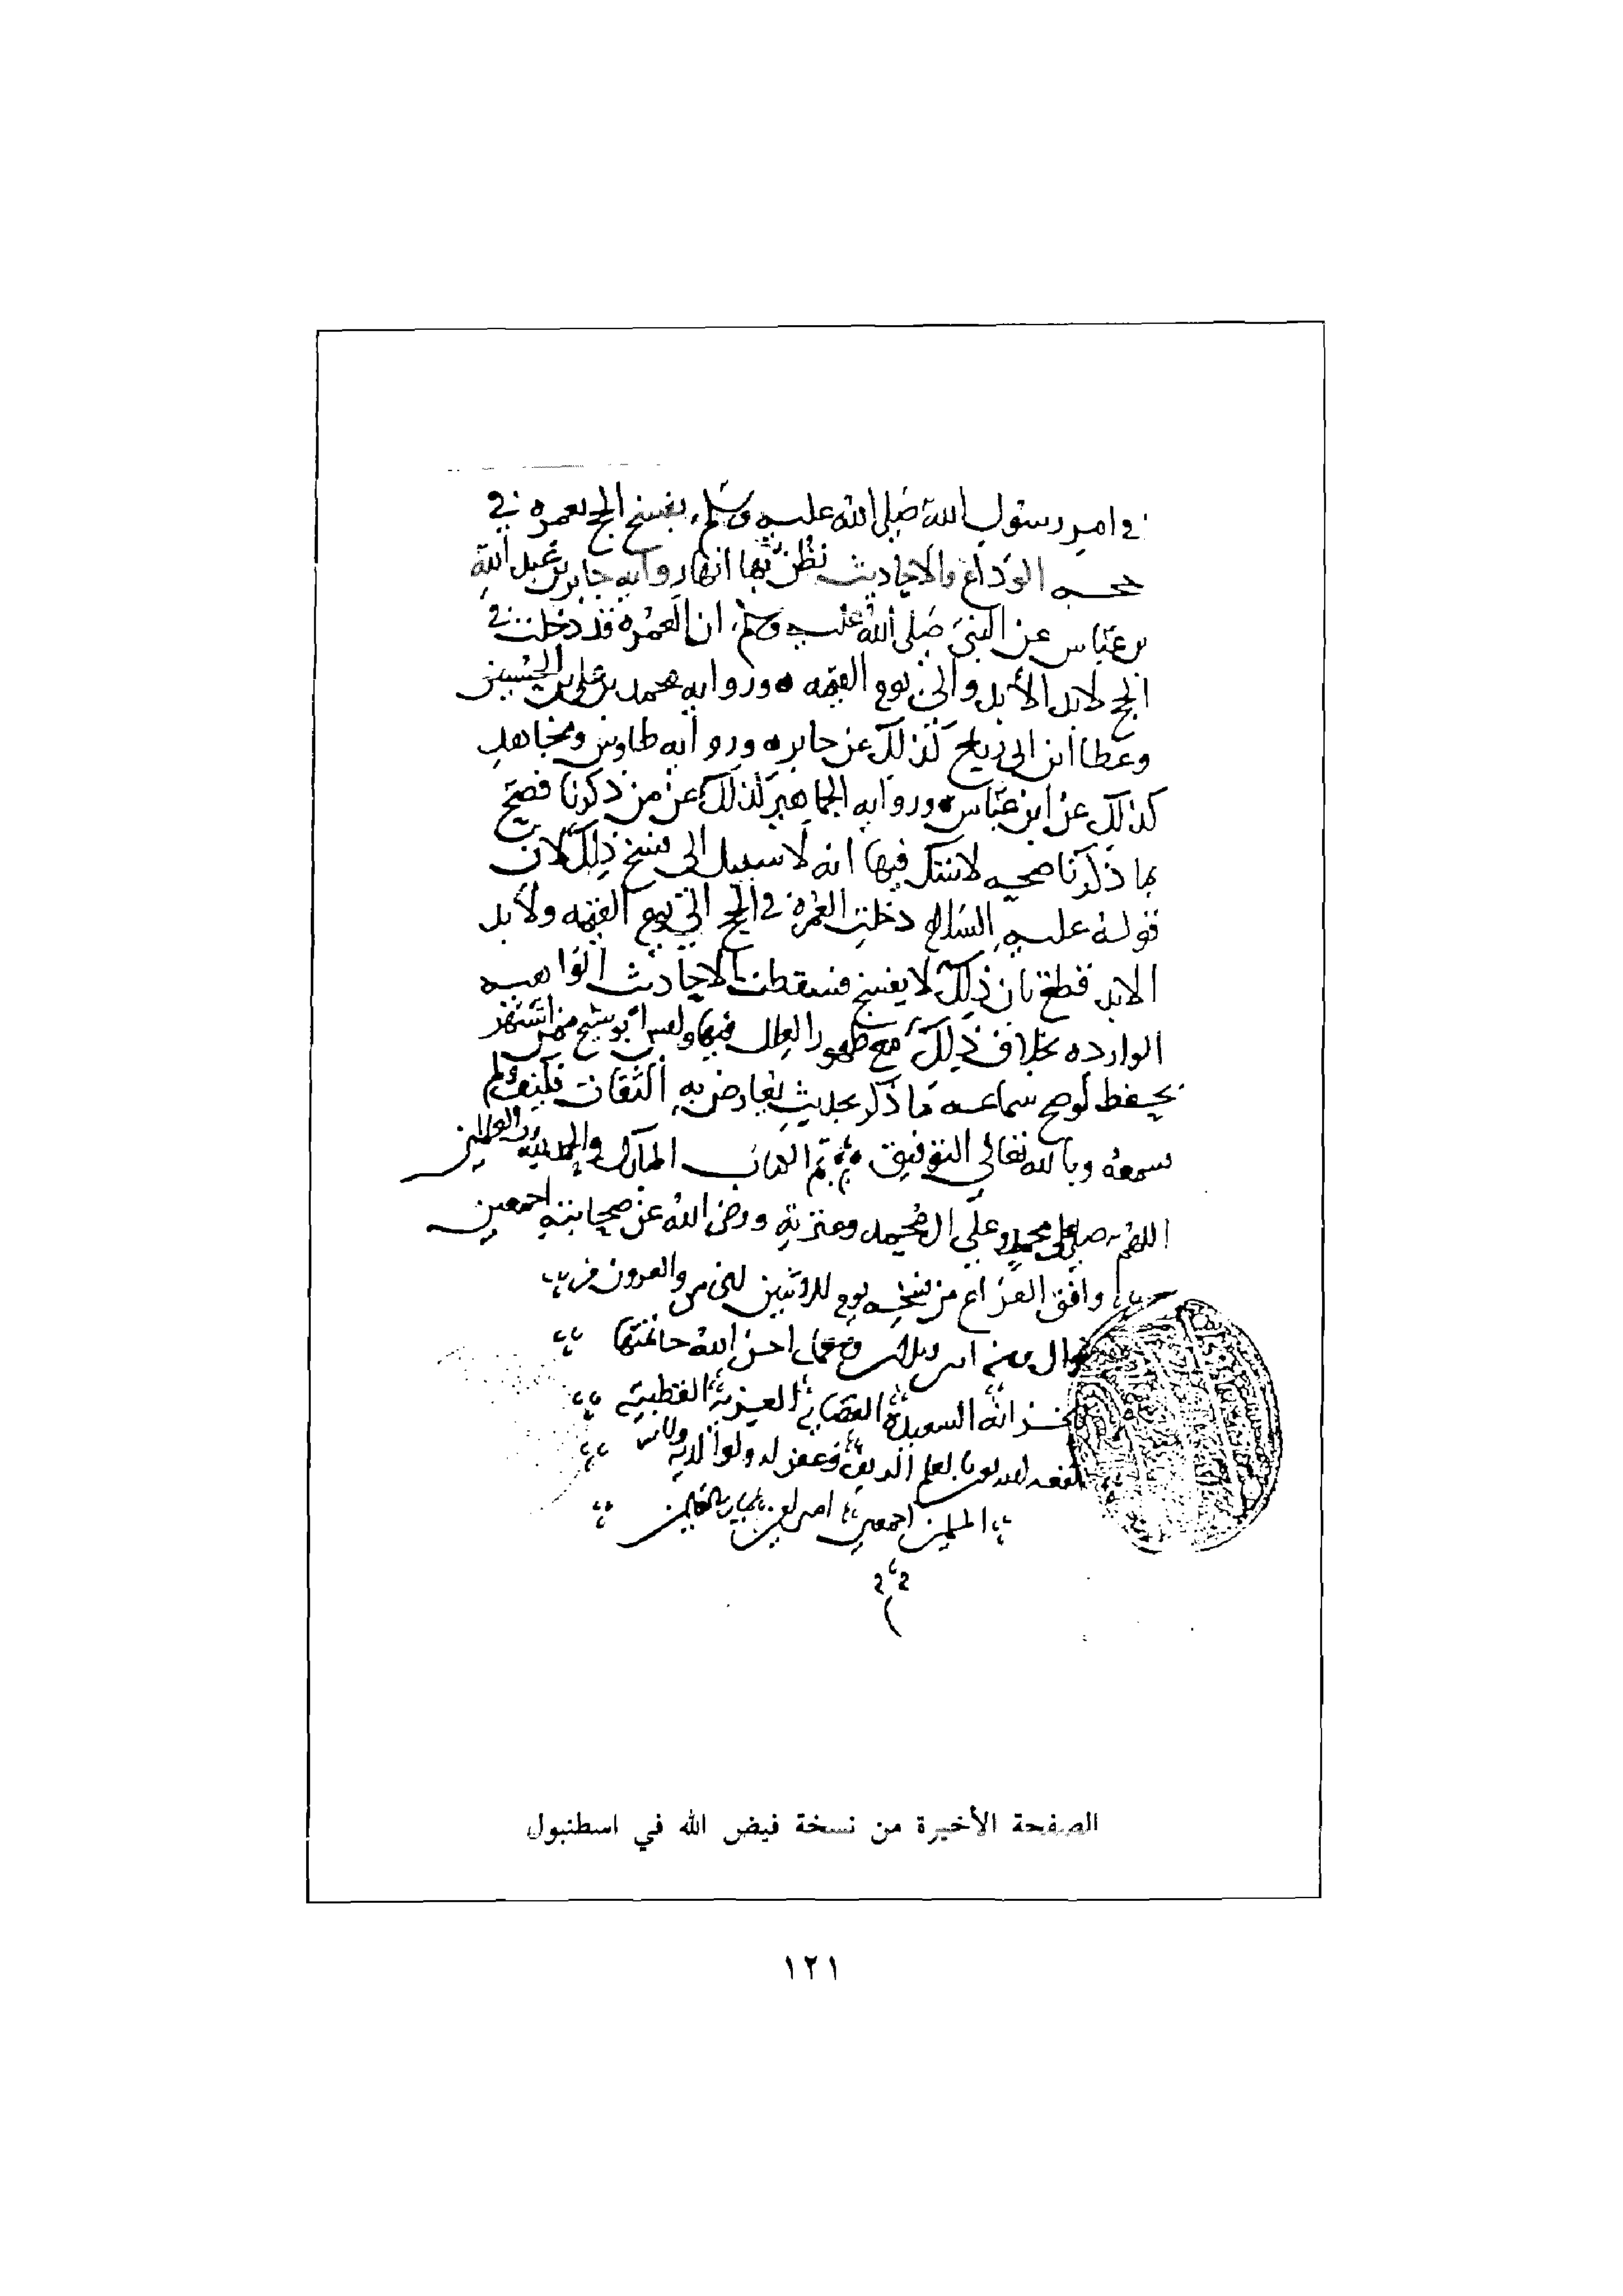 في امر رسول الله صلى الله عليه وسلم بفسخ الحج بعمره في
حجه الوداع والاحاديث نظن بها انها روايه جابر بن عبد الله
بن عباس عن النبي صلى الله عليه وسلم ان العمره قد دخلت في
الحج لابد الأبد والى يوم القيمه ورواية محمد بن علي بن الحسين
وعطا ابن ابي رباح كذلك عن جابر وروايه طاوس ومجاهد
كذلك عن ابن عباس وروايه الجماهير كذلك عن من ذكرنا فصح
بما ذكرنا صحه لا شك فيها انه لا سبيل الى فسخ ذلك لان
قوله عليه السلام دخلت العمرة في الحج الى يوم القيمه ولأبد
الابد قطع بان ذلك لا يفسخ فسقطت الاحاديث الواهيه
الوارده بخلاف ذلك مع ظهور العلل فيها وليس ابو شيخ ممن اشتهر
بحفظ لو صح سماعه ما ذكر بحديث يعارض به الثقات فكيف ولم
يسمعه وبالله تعالى التوفيق تم الكتاب المبارك والحمد لله رب العالمين
اللهم صل على محمد وعلى ال محمد وعترته ورضى الله عن صحابته اجمعين
وافق الفراغ من نسخه يوم الاثنين الخامس والعشرون من
شوال سنه احسن الله خاتمتها
بخزانه السعيدة العزيه القطبيه
بالعلم وغفر له ولوالديه
المسلمين اجمعين امين
الصفحة الأخيرة من نسخة فيض الله في اسطنبول
١٢١